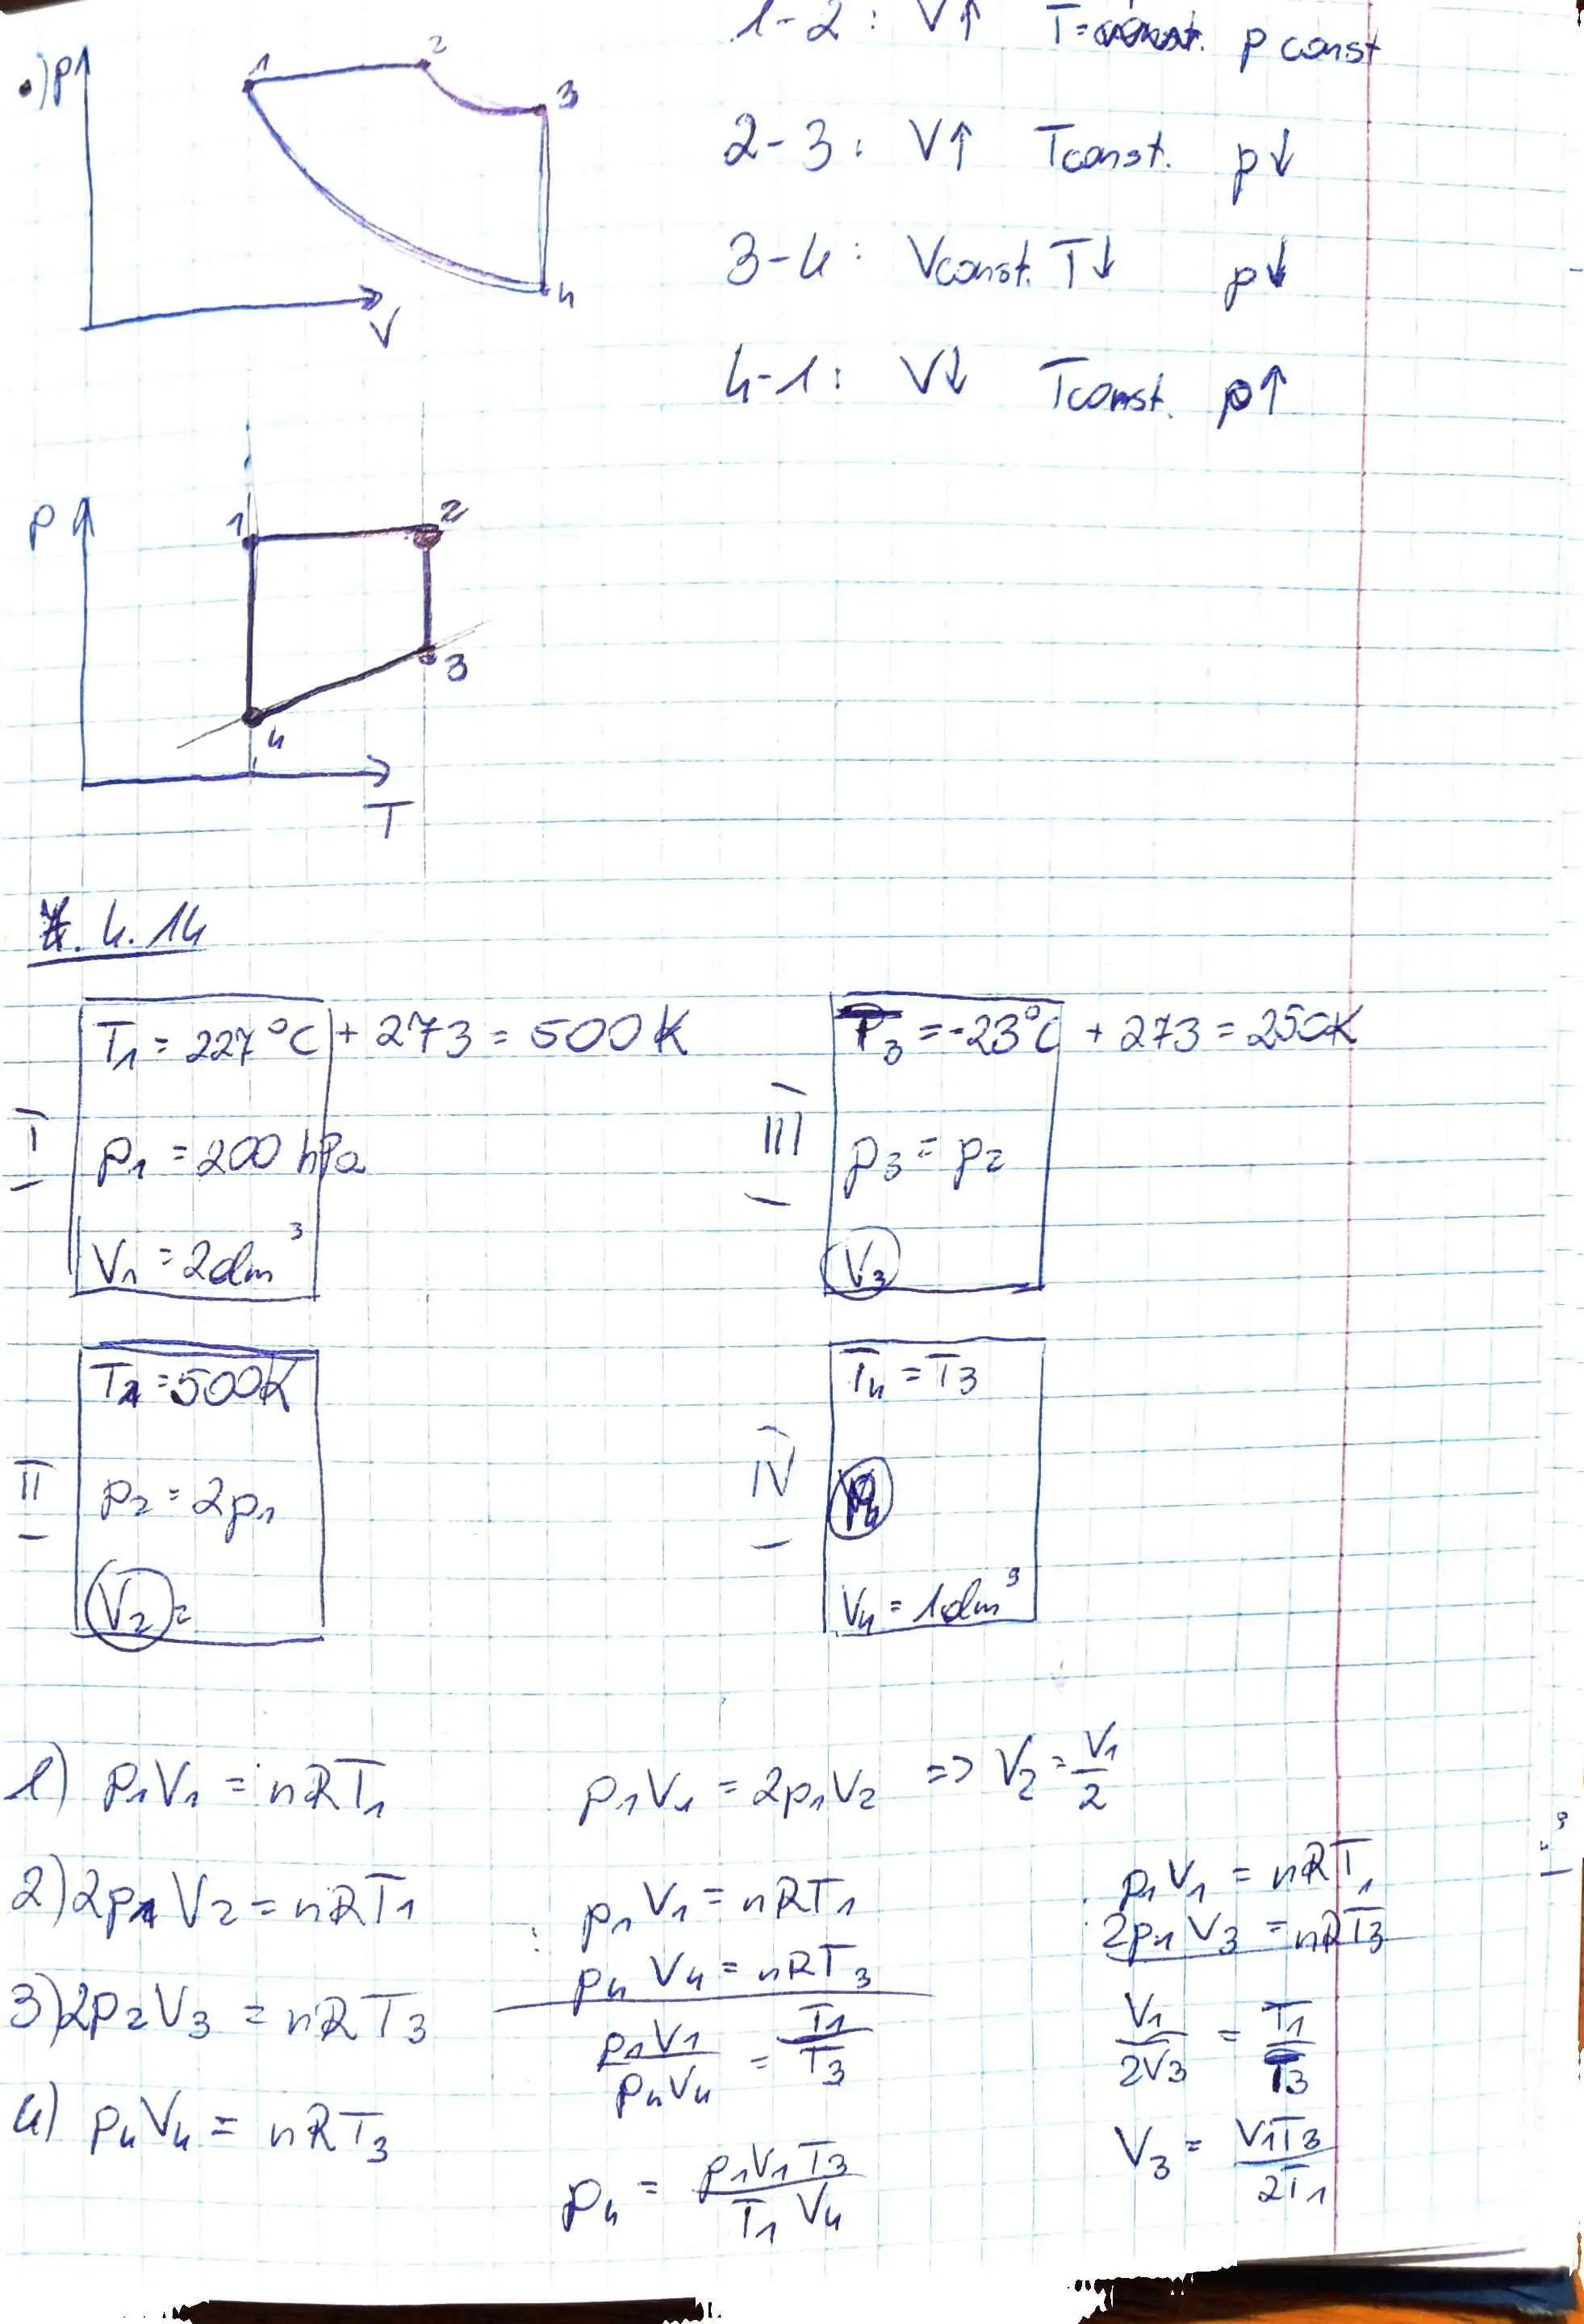 1-2: V↑ T= p const
•) p
1 2 3 4
V
2-3: V↑ Tconst. p↓
3-4: Vconst. T↓ p↓
4-1: V↓ Tconst. p↑
p
1 2 3 4
T
4.14
I
T₁ = 227°C + 273 = 500K
p₁ = 200 hPa
V₁ = 2dm³
III
T₃ = -23°C + 273 = 250K
p₃ = p₂
V₃
II
T₂ = 500K
p₂ = 2p₁
V₂ =
IV
T₄ = T₃
p₄
V₄ = 1dm³
1) p₁V₁ = nRT₁
2) 2p₁V₂ = nRT₁
3) 2p₂V₃ = nRT₃
4) p₄V₄ = nRT₃
p₁V₁ = 2p₁V₂ => V₂ = V₁/2
: p₁V₁ = nRT₁
p₄V₄ = nRT₃
p₁V₁/p₄V₄ = T₁/T₃
p₄ = p₁V₁T₃/T₁V₄
: p₁V₁ = nRT₁
2p₁V₃ = nRT₃
V₁/2V₃ = T₁/T₃
V₃ = V₁T₃/2T₁